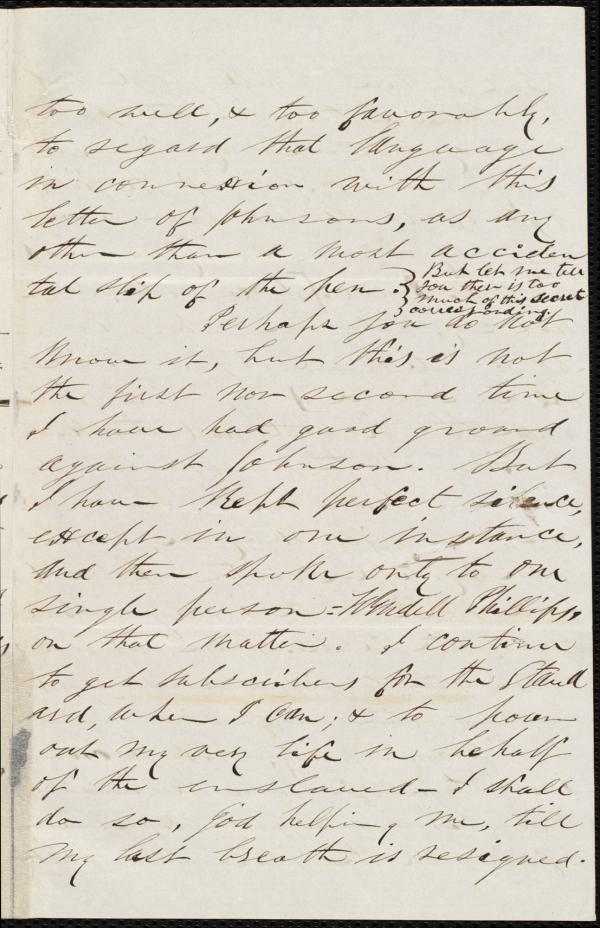 too well, & too favorably,
to regard that language
in connexion with this
letter of Johnsons, as any
other than a most acciden
tal slip of the pen.
But let me tell
you there is too
much of this secret
corresponding.
Perhaps you do not
know it, but this is not
the first nor second time
I have had good ground
against Johnson. But
I have kept perfect silence,
except in one instance,
and then spoke only to one
single person - Wendell Phillips,
on that matter. I continue
to get subscribers for the Stand
ard, when I can; & to pour
out my very life in behalf
of the enslaved - I shall
do so, God helping me, till
my last breath is resigned.